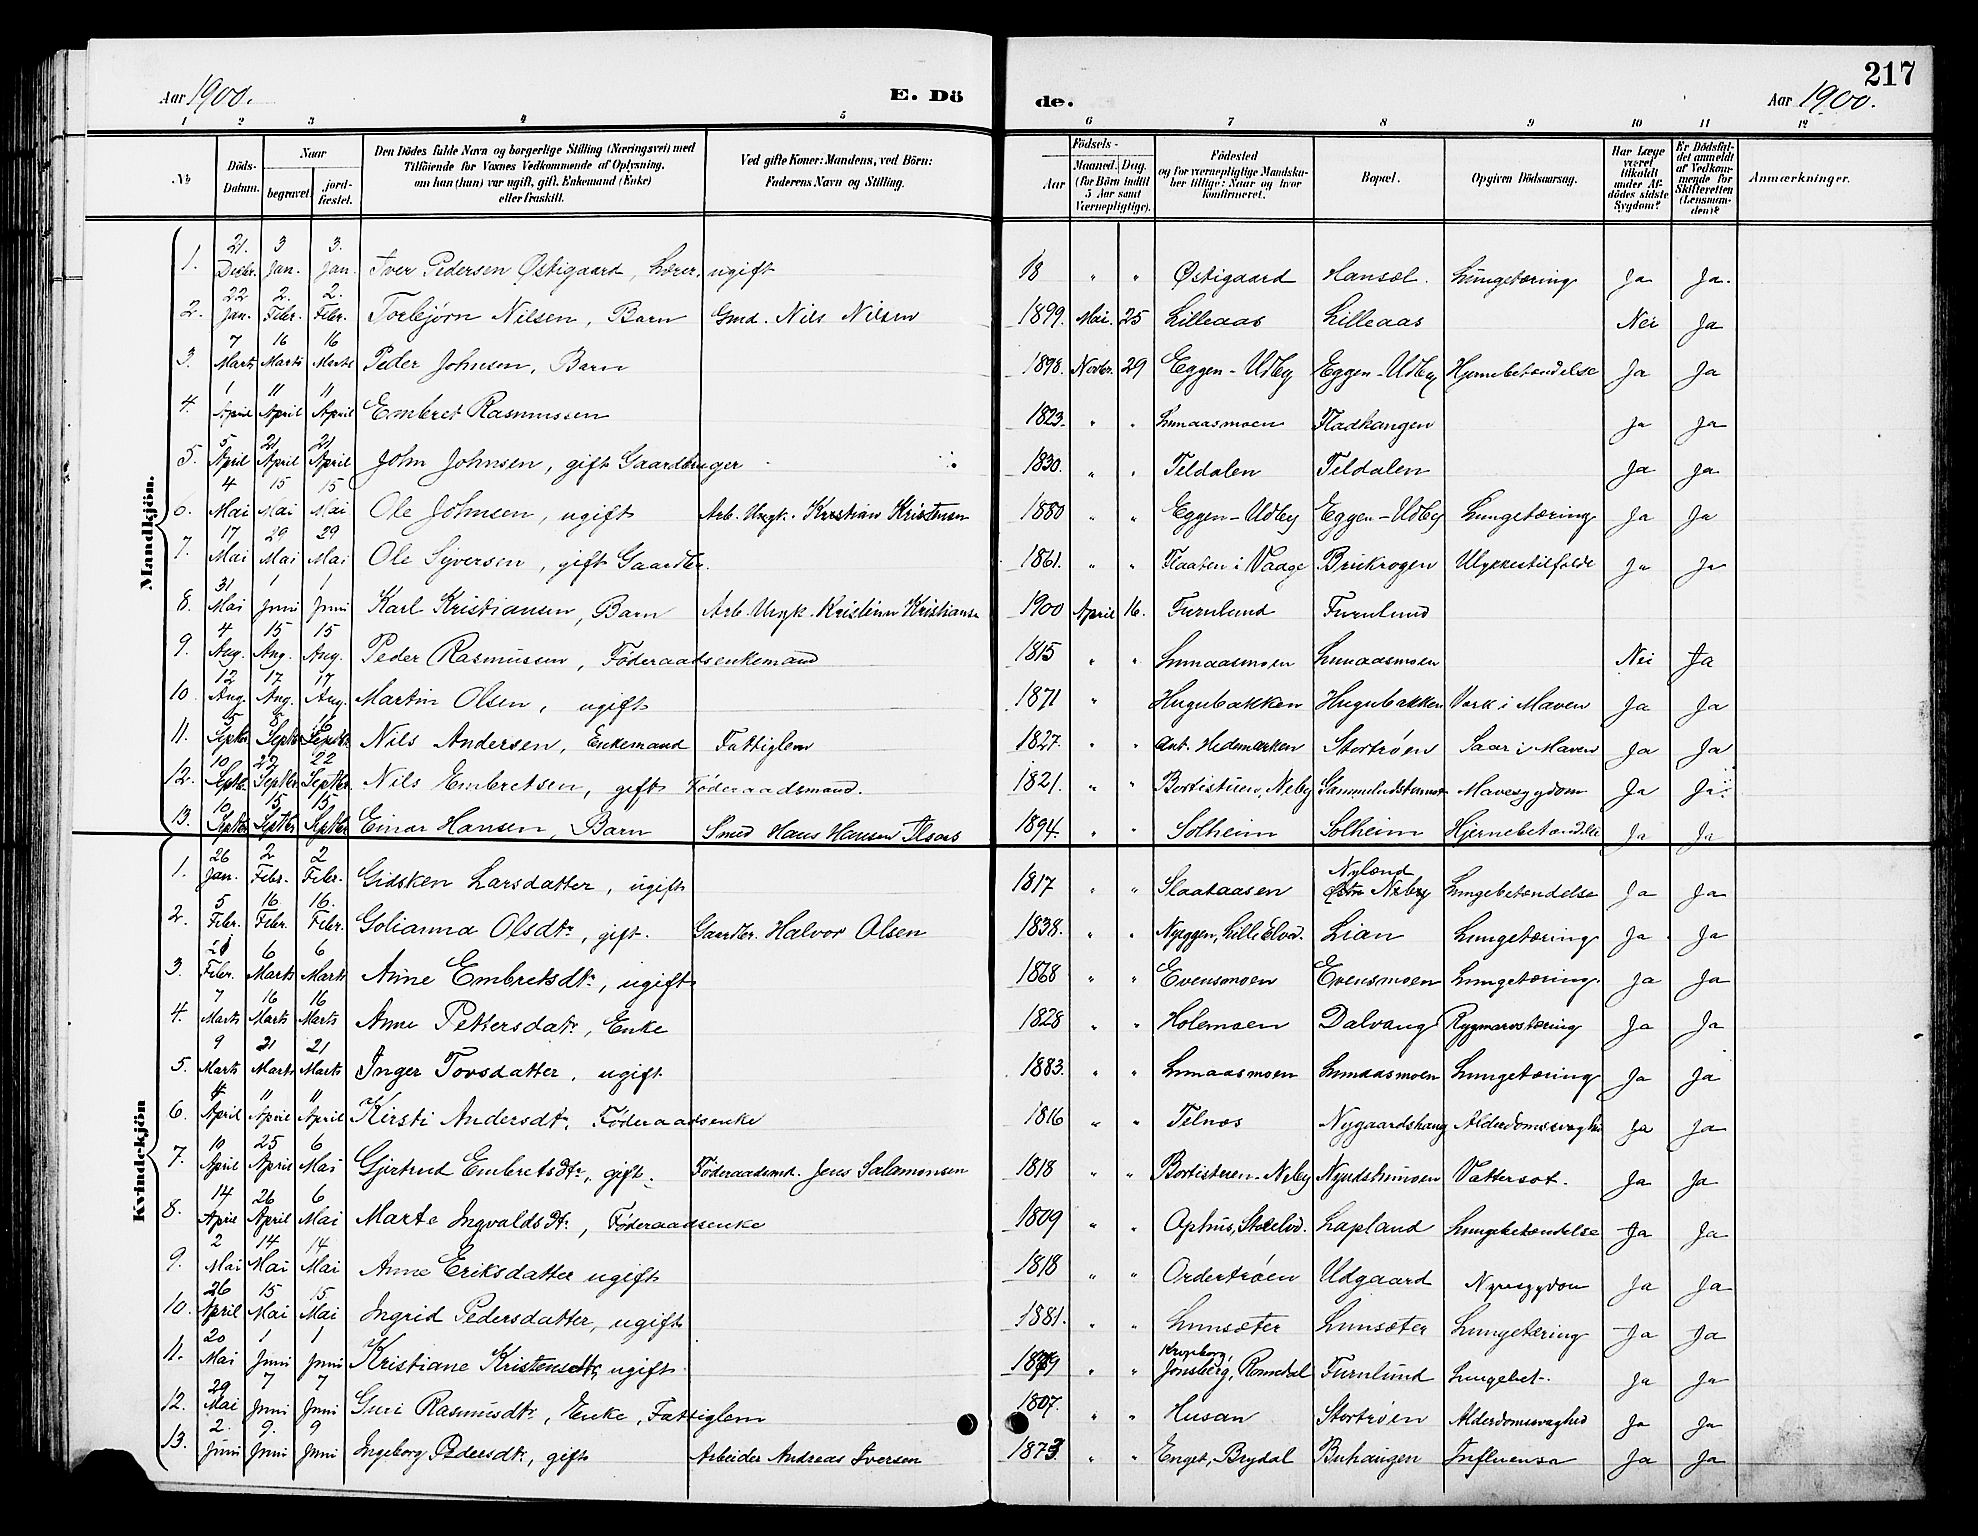 217
Aar 1900. E. Dö de. Aar 1900.
1 2 3 4 5 6 7 8 9 10 11 12
No | Döds-Datum. | Naar begravet. | Naar jordfæstet. | Den Dödes fulde Navn og borgerlige Stilling (Næringsvei) med Tilföiende for Voxnes Vedkommende af Oplysning, om han (hun) var ugift, gift, Enkemand (Enke) eller fraskilt. | Ved gifte Koner: Mandens, ved Börn: Faderens Navn og Stilling. | Födsels- Aar | Maaned. Dag. (for Börn indtil 5 Aar samt Værnepligtige). | Födested og for værnepligtige Mandskaber tillige: Naar og hvor konfirmeret. | Bopæl. | Opgiven Dödsaarsag. | Har Læge været tilkaldt under Afdödes sidste Sygdom? | Er Dödsfaldet anmeldt af Vedkommende for Skifteretten (Lensmanden)? | Anmærkninger.
Mandkjön.
1. 21. Decbr. 3 Jan. 3. Jan. Iver Pedersen Østigaard, Lærer, ugift 18 " " Østigaard Hansæl. Lungetæring Ja Ja.
2. 22 Jan. 2. Febr. 2. Febr. Torbjørn Nilsen, Barn Gmd. Nils Nilsen 1899. Mai. 25 Lilleaas Lilleaas Nei Ja
3. 7 Marts 16 Marts 16 Marts Peder Johnsen, Barn 1898. Novbr. 29 Eggen-Udby Eggen-Udby Hjernebetændelse Ja Ja
4. 1 April 11 April 11 April Embret Rasmussen 1823. " " Lunaasmoen Fladhangen Ja Ja
5. 5 April 21 April 21 April John Johnsen, gift Gaardbruger 1830. " " Teldalen Teldalen Ja Ja
6. 4 Mai 15 Mai 15 Mai Ole Johnsen, ugift Arb. Ungk. Kristian Kristensen 1880 " " Eggen-Udby Eggen-Udby Lungetæring Ja Ja
7. 17 Mai 29 Mai 29 Mai Ole Syversen, gift Gaardbr. 1861. " " Flaaten i Vaage Brikrogen Ulykkestilfælde Ja Ja
8. 31 Mai 1 Juni 1 Juni Karl Kristiansen, Barn Arb. Ungk. Kristian Kristiansen 1900 April 16. Furulund Furulund
9. 4 Aug. 15 Aug. 15 Aug. Peder Rasmussen, Föderaadsenkemand 1815 " " Lunaasmoen Lunaasmoen Nei Ja
10. 12 Aug. 17 Aug. 17 Aug. Martin Olsen, ugift 1871 " Hugubakken Hugubakken Værk i Maven Ja Ja
11. 5 Septbr. 8 Septbr. 16 Septbr. Nils Andersen, Enkemand Fattiglem 1827. " " Ant. Hedemarken Stortrøen Saar i Maven Ja Ja
12. 10 Septb. 22 Septbr. 22 Septbr. Nils Embretsen, gift Föderaadsmand. 1821. " " Bortistuen, Neby Mavesygdom Ja Ja.
13. 10 Septbr. 15 Septbr 15 Septbr Einar Hansen, Barn Smed Hans Hansen 1894. " " Solheim Solheim Hjernebetændelse Ja Ja
Kvindekjön
1. 26 Jan. 2 Febr. 2 Febr. Gidsken Larsdatter, ugift 1817 " " Slaataasen Nyland Østre Neby Lungebetændelse Ja Ja
2. 5 Febr. 16 Febr. 16. Febr. Golianna Olsdtr, gift. Gaardbr. Halvor Olsen 1838. " " Nyeggen, Lille Elvd. Lian Lungetæring Ja Ja
3. Febr. 6 Marts 6 Marts Anne Embretsdtr, ugift 1868 " " Evensmoen Evensmoen Lungetæring. Ja Ja
4. 7 Marts 16 Marts 16 Marts Anne Pettersdatr, Enke 1828 " " Holemoen Dalvang Rygmarvstæring Ja Ja
5. 9 Marts 21 Marts 21 Marts Inger Torsdatter, ugift 1883. " " Lunaasmoen Lunaasmoen Lungetæring Ja Ja
6. 4 April 11 April 11 April Kirsti Andersdtr, Föderaadsenke 1816 " " Telnæs Nygaardshaug Alderdomssvaghed Ja Ja
7. 10 April 25 April 6 Mai Gjertrud Embretsdtr, gift. Föderaadsmd. Jens Salamonsen 1818 " " Bortistuen-Neby Nyudshuusen Vattersot. Ja Ja
8. 14 April 26 April 6 Mai Marte Ingvaldsdtr, Föderaadsenke 1809 " " Ophus, Storelvd. Lapland Lungebetændelse Ja Ja
9. 2 Mai 14 Mai 14 Mai Anne Eriksdatter ugift 1818 " " Ordertrøen Udgaard Nyresygdom Ja Ja
10. 26 April 15 Mai 15 Mai Ingrid Pedersdatter, ugift 1881. " " Lunsæter Lunsæter Lungetæring Ja Ja
11. 20 Mai 1 Juni 1 Juni Kristiane Kristensdtr, ugift 1879 " " Jonsberg, Romedal Furulund Lungebet. Ja Ja
12. 29 Mai 7 Juni 7 Juni Guri Rasmusdtr, Enke, Fattiglem 1807. " " Husan Stortrøen Alderdomssvaghed Ja Ja
13. 2. Juni 9. Juni 9 Juni Ingeborg Pedersdtr, gift Arbeider Andreas Iversen 1873 " " Enget, Brydal Buhaugen Influensa Ja Ja